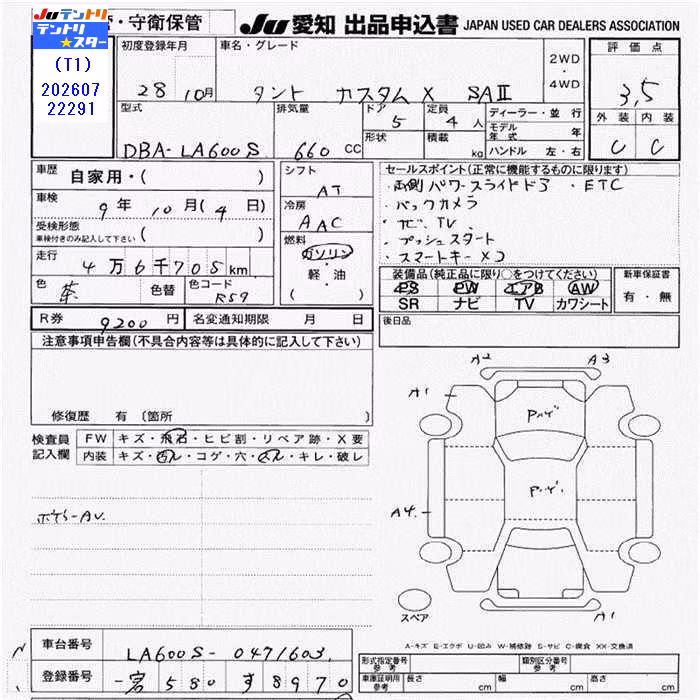 Juテントリ
テントリ★スター
(T1)
202607
22291
・守衛保管
Ju 愛知 出品申込書 JAPAN USED CAR DEALERS ASSOCIATION
初度登録年月 車名・グレード 2WD・4WD 評価点
28 10月 タント カスタムX SAⅡ 3,5
型式 排気量 ドア 5 定員 4人 ディーラー・並行 外装 内装
形状 積載 kg モデル年式 年
ハンドル 左・右
DBA-LA600S 660 CC C C
車歴 自家用・( )
シフト AT
セールスポイント(正常に機能するものに限ります)
・両側パワースライドドア ・ETC
・バックカメラ
・ナビ、TV
・プッシュスタート
・スマートキー×2
車検 9年 10月(4日)
冷房 AAC
受検形態
車検付きのみ記入して下さい ( )
燃料 ガソリン・軽・油 ( )
走行 4万6千705km
色 茶 色替 色コード R59
装備品(純正品に限り○をつけてください) 新車保証書
PS PW エアB AW 有・無
SR ナビ TV カワシート
R券 9200円 名変通知期限 月 日
後日品
注意事項申告欄(不具合内容等は具体的に記入して下さい)
修復歴 有 (箇所 )
検査員記入欄
FW キズ・飛石・ヒビ割・リペア跡・X要
内装 キズ・汚ル・コゲ・穴・スレ・キレ・破レ
A2 A3
A1
Pハゲ
Pハゲ
A4
A1
スペア
A-キズ E-エクボ U-凹み W-補修跡 S-サビ C-腐食 XX-交換済
車台番号 LA600S-0471603
登録番号 一宮 580 す 8970
形式指定番号 参考 類別区分番号 参考
車庫証明用 参考 長さ cm 幅 cm 高さ cm